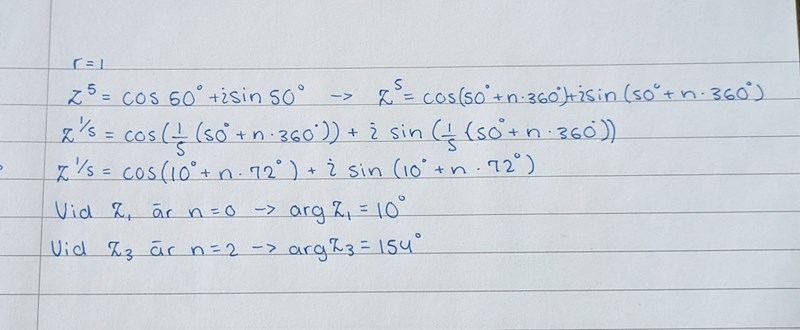 r=1
z⁵ = cos 50° + i sin 50° -> z⁵ = cos(50° + n·360°) + i sin (50° + n·360°)
z^1/5 = cos(1/5 (50° + n·360°)) + i sin (1/5 (50° + n·360°))
z^1/5 = cos(10° + n·72°) + i sin (10° + n·72°)
Vid z₁ är n=0 -> arg z₁ = 10°
Vid z₃ är n=2 -> arg z₃ = 154°